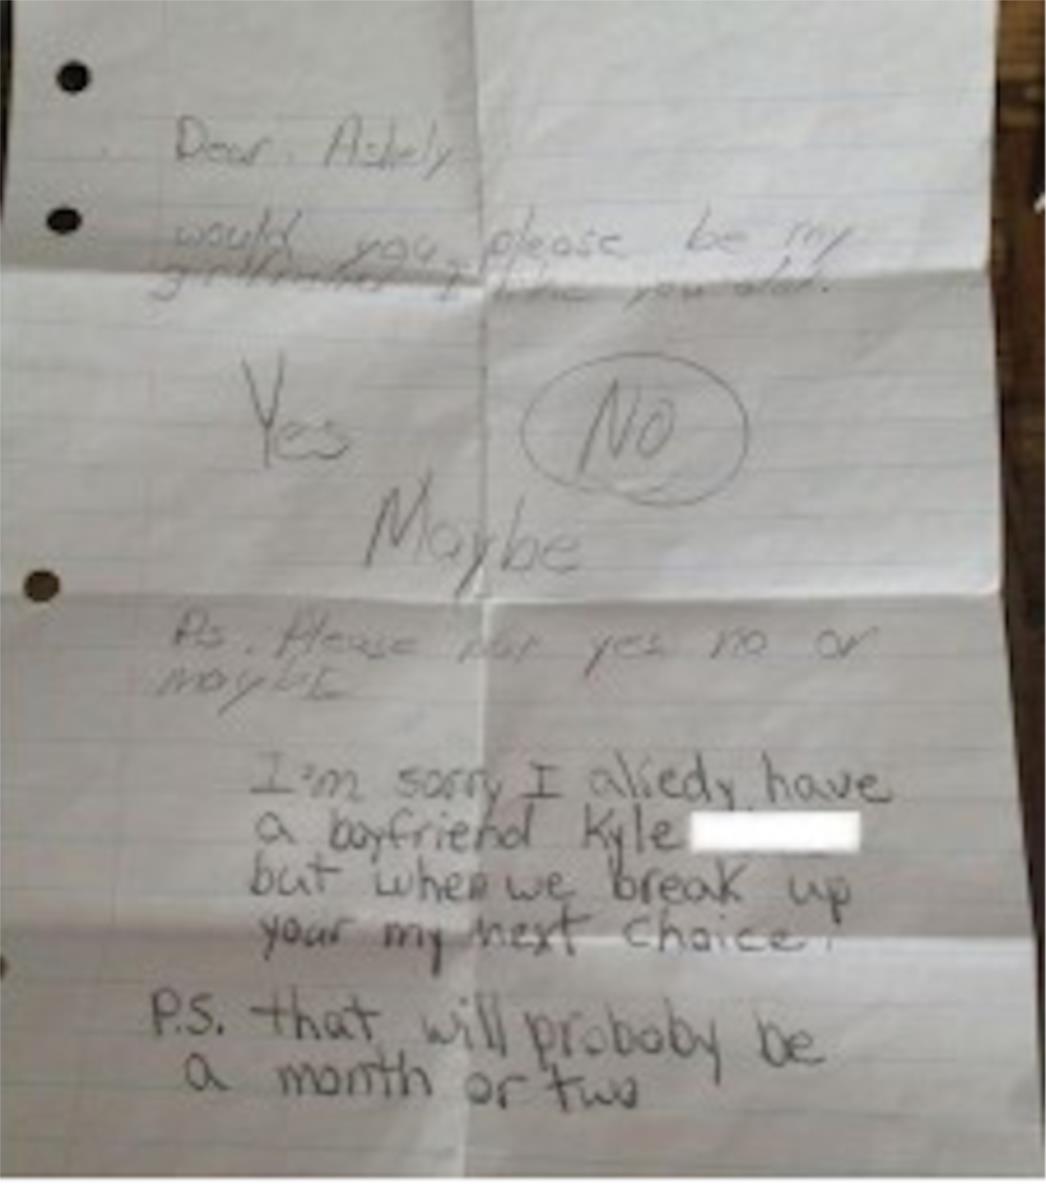 Dear. Ashely
would you please be my
girlfriend I like you alot.
Yes NO
Maybe
Ps. Please put yes no or
maybE
I'm sorry I alredy have
a boyfriend Kyle
but when we break up
your my next choice!
P.S. that will probaby be
a month or two